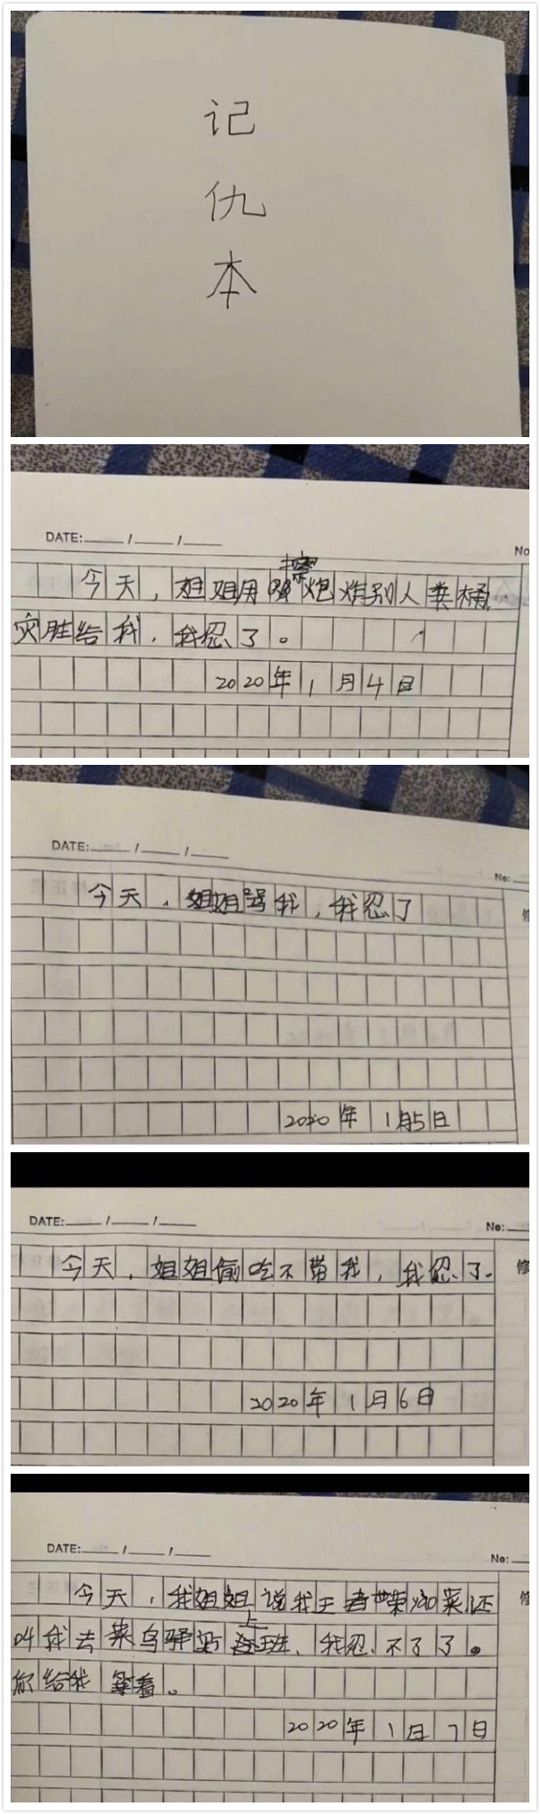 记
仇
本
DATE: / /
No
今天，姐姐用擦炮炸别人粪桶
灾胜给我，我忍了。
2020年1月4日
DATE: / /
No:
今天，姐姐骂我，我忍了
2020年1月5日
DATE: / /
No:
今天，姐姐偷吃不带我，我忍了。
2020年1月6日
DATE: / /
No:
今天，我姐姐说我王者荣 菜还
叫我去菜鸟驿站上班、我忍不了了。
你给我等着。
2020年1月7日